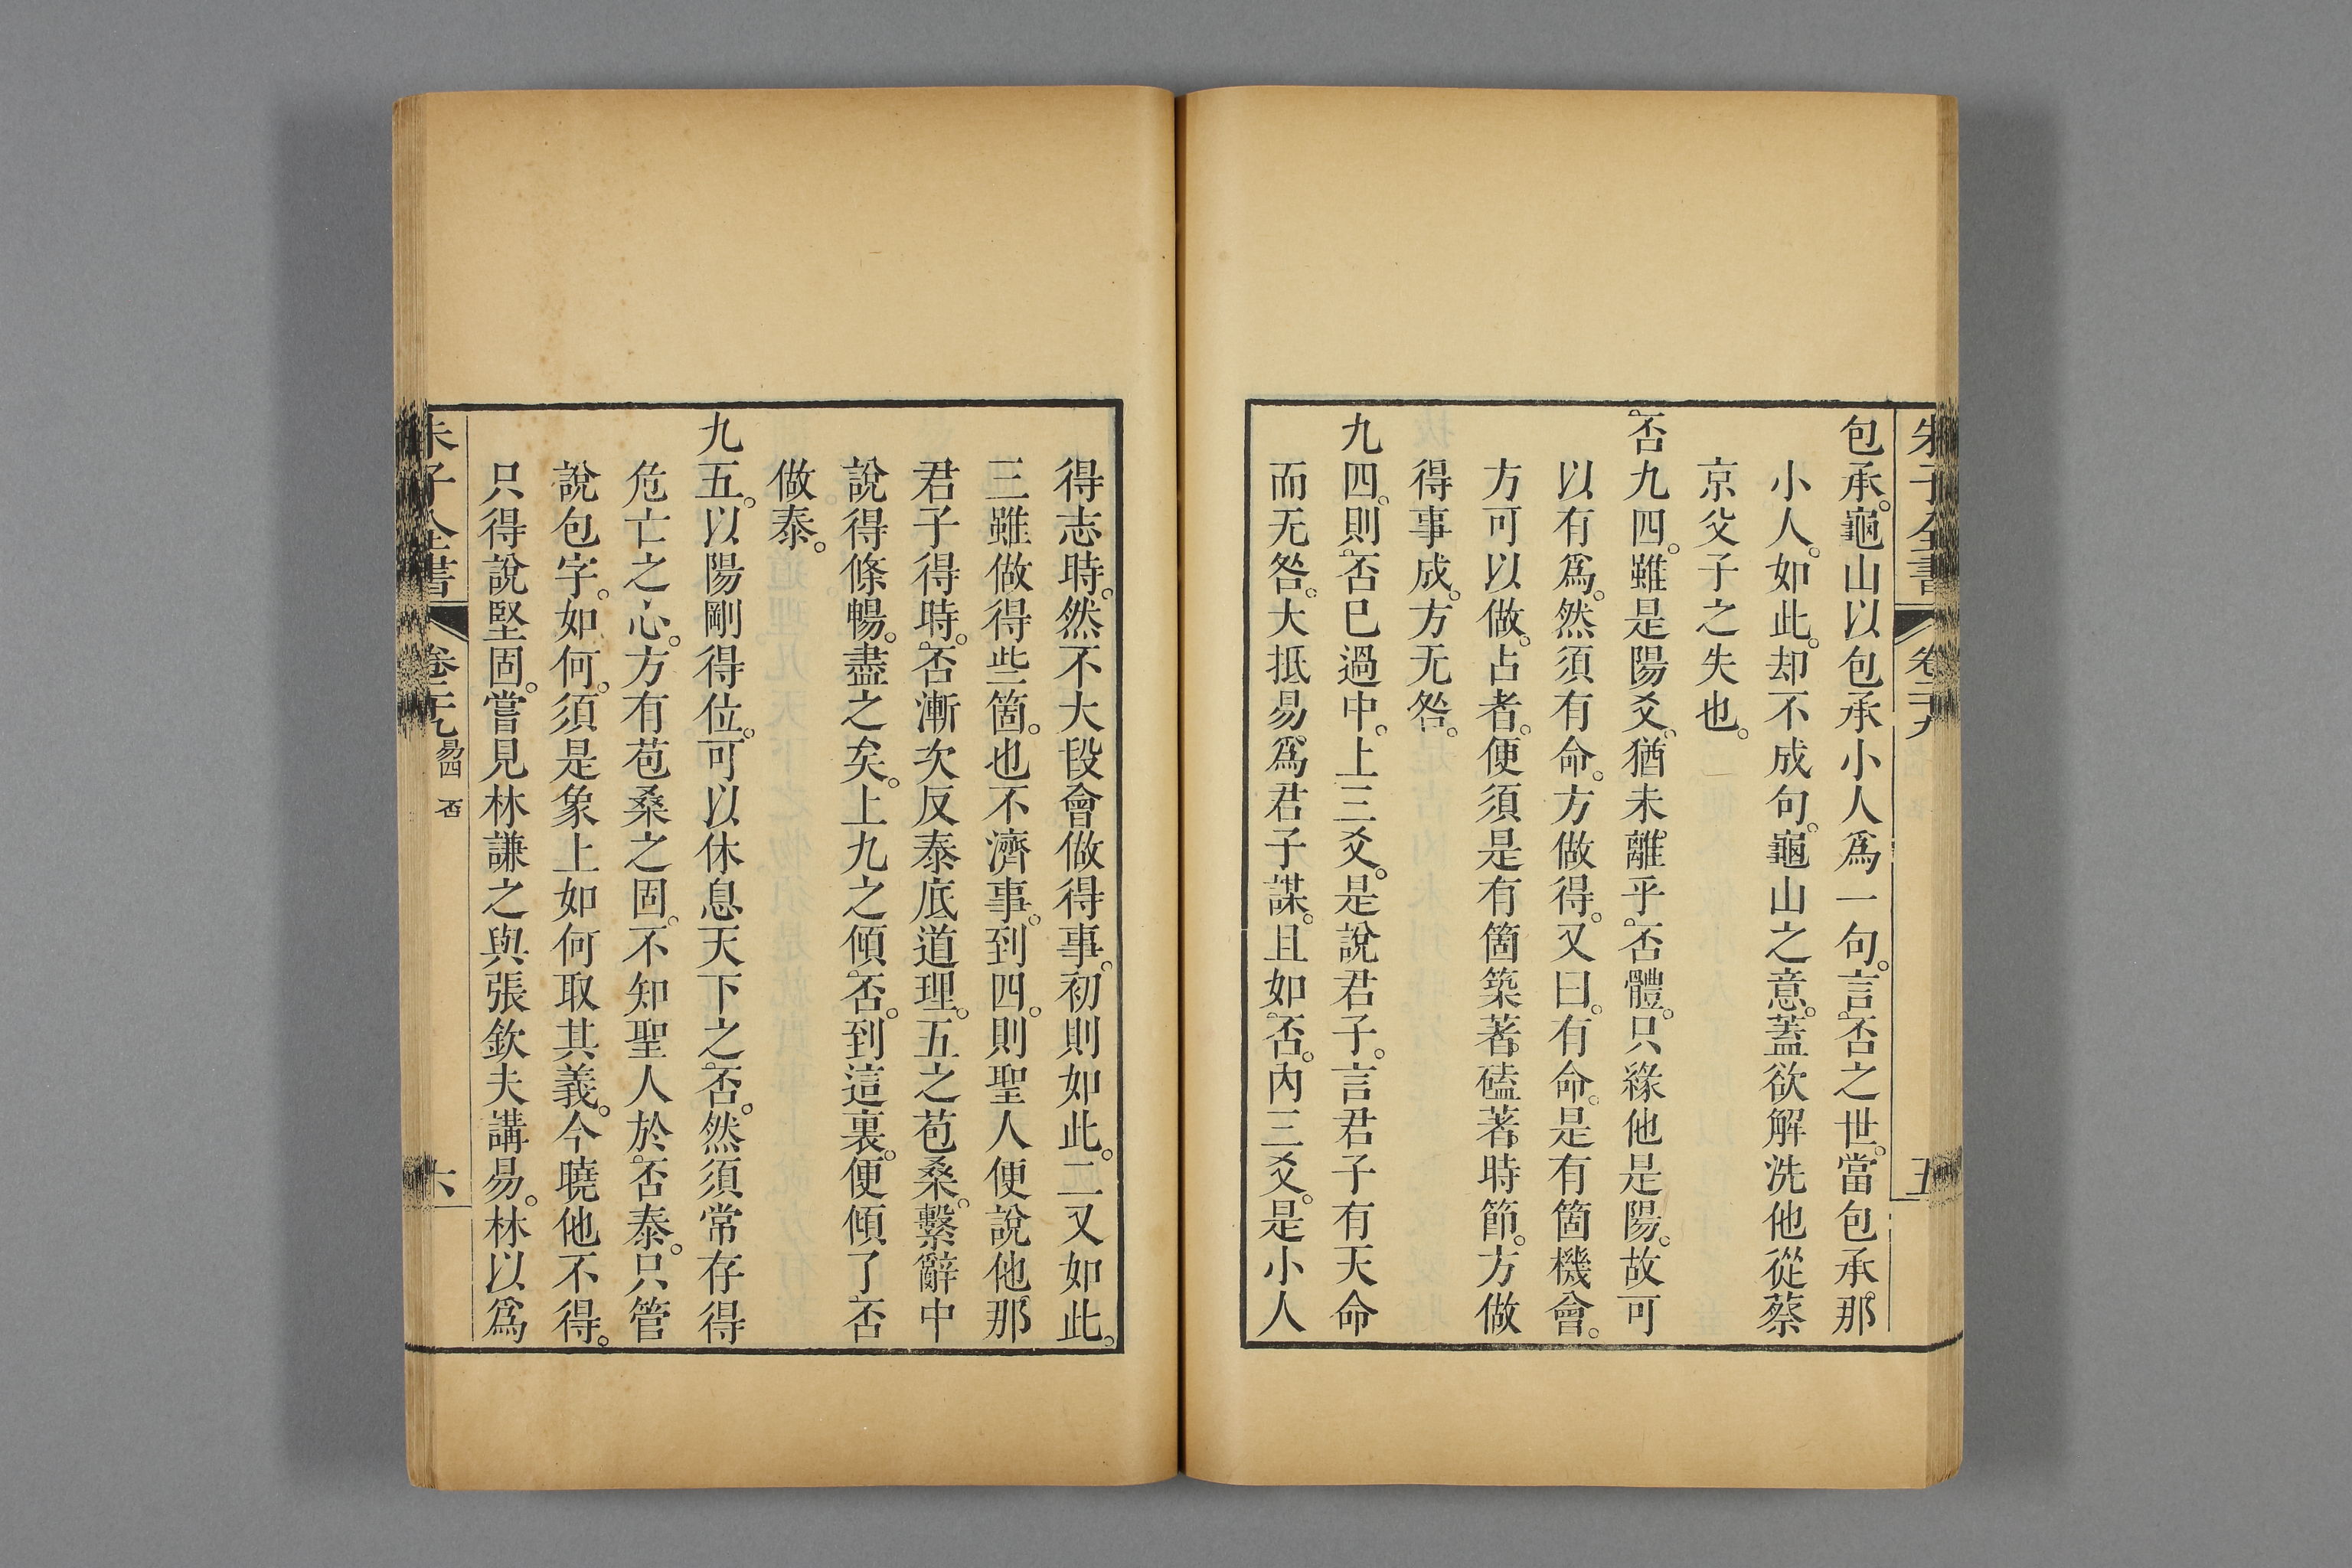 朱子全書 卷二十九 五
包承。龜山以包承小人爲一句。言否之世。當包承那
小人。如此。却不成句。龜山之意。蓋欲解洗他從蔡
京父子之失也。
否九四。雖是陽爻。猶未離乎否體。只緣他是陽。故可
以有爲。然須有命。方做得。又曰。有命。是有箇機會。
方可以做。占者。便須是有箇築著磕著時節。方做
得事成。方无咎。
九四。則否已過中。上三爻。是說君子。言君子有天命
而无咎。大抵易爲君子謀。且如否。內三爻。是小人
得志時。然不大段會做得事。初則如此。二又如此。
三雖做得些箇。也不濟事。到四。則聖人便說他那
君子得時。否漸次反泰底道理。五之苞桑。繫辭中
說得條暢。盡之矣。上九之傾否。到這裏。便傾了否
做泰。
九五。以陽剛得位。可以休息天下之否。然須常存得
危亡之心。方有苞桑之固。不知聖人於否泰。只管
說包字。如何。須是象上如何取其義。今曉他不得。
只得說堅固。嘗見林謙之與張欽夫講易。林以爲
朱子全書 卷二十九 易四 否 六